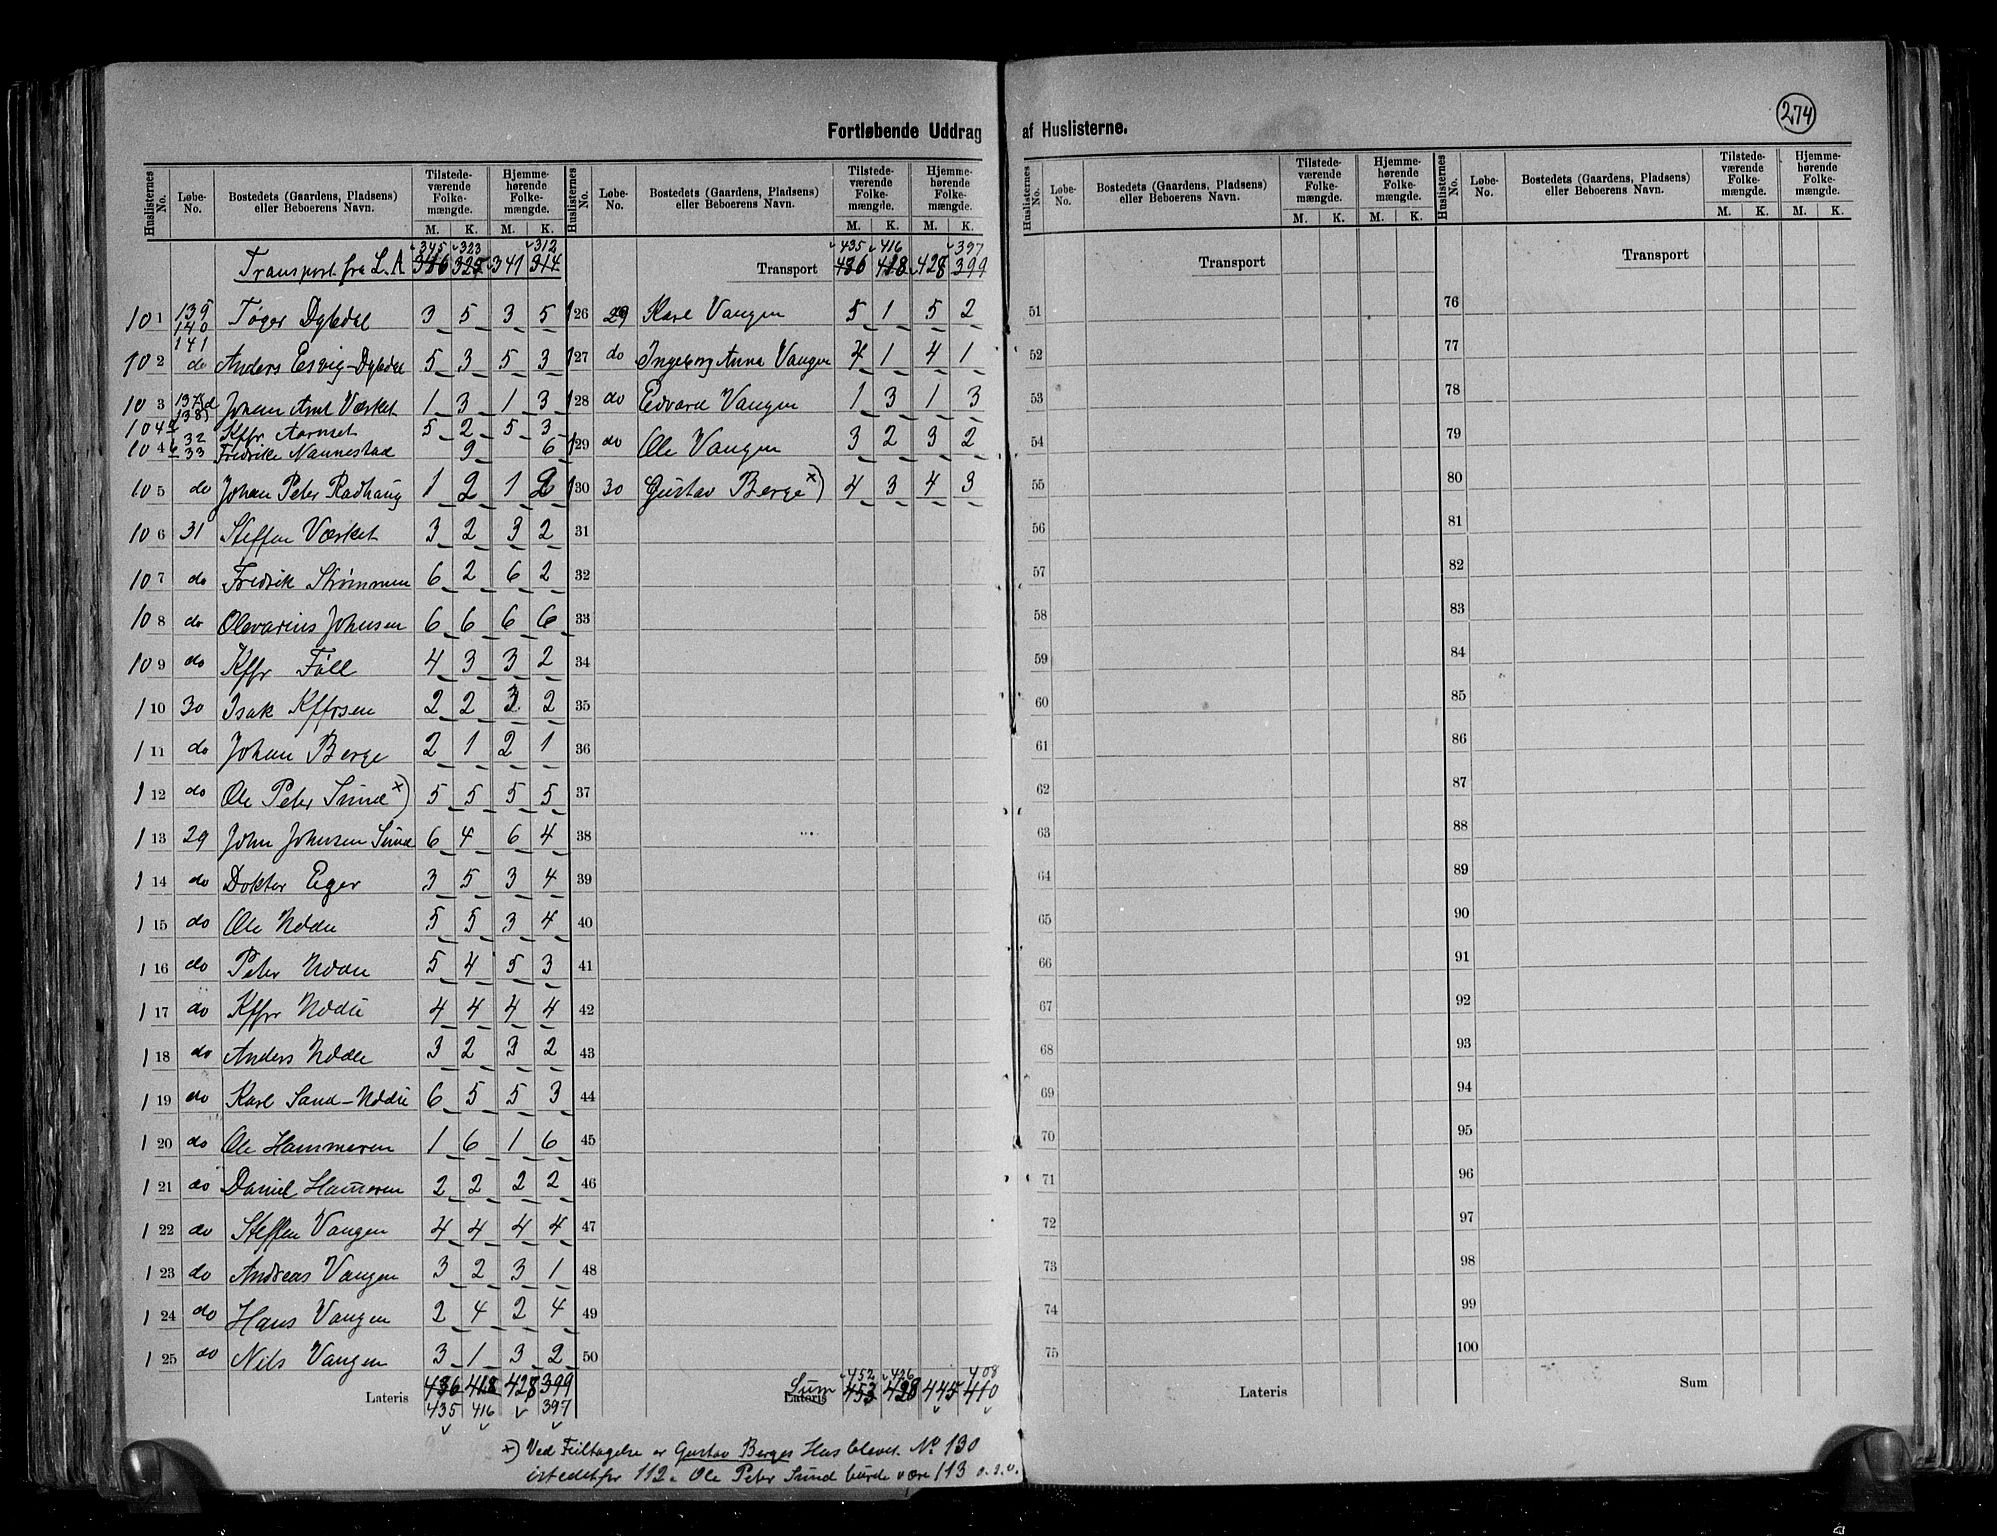 274
Fortløbende Uddrag af Huslisterne.
Huslisternes No. Løbe-No. Bostedets (Gaardens, Pladsens) eller Beboerens Navn. Tilstede-værende Folke-mængde. M. K. Hjemme-hørende Folke-mængde. M. K.
345 323 312
Transport fra L. A 346 325 341 314
101 139 140 141 Tøger Dybdal 3 5 3 5
102 do Anders Esvig-Dybdal 5 3 5 3
103 137 138 Johan Arnt Værket 1 3 1 3
104a 32 Kffr Aarnset 5 2 5 3
104b 33 Fredrike Nannestad 9 6
105 do Johan Peter Radhaug 1 2 1 2
106 31 Steffen Værket 3 2 3 2
107 do Fredrik Strømmen 6 2 6 2
108 do Olevarius Johnsen 6 6 6 6
109 do Kffr Føll 4 3 3 2
110 30 Isak Kffrsen 2 2 3 2
111 do Johan Berge 2 1 2 1
112 do Ole Peter Sund x) 5 5 5 5
113 29 John Johnsen Sund 6 4 6 4
114 do Doktor Eger 3 5 3 4
115 do Ole 5 5 3 4
116 do Peter 5 4 5 3
117 do Kffr 4 4 4 4
118 do Anders 3 2 3 2
119 do Karl Sand- 6 5 5 3
120 do Ole Hammeren 1 6 1 6
121 do Daniel Hameren 2 2 2 2
122 do Steffen Vangen 4 4 4 4
123 do Andreas Vangen 3 2 3 1
124 do Hans Vangen 2 4 2 4
125 do Nils Vangen 3 1 3 2
Lateris 436 418 428 399
435 416 397
Huslisternes No. Løbe-No. Bostedets (Gaardens, Pladsens) eller Beboerens Navn. Tilstede-værende Folke-mængde. M. K. Hjemme-hørende Folke-mængde. M. K.
435 416 397
Transport 436 418 428 399
126 29 Karl Vangen 5 1 5 2
127 do Ingeborg Anna Vangen 4 1 4 1
128 do Edvard Vangen 1 3 1 3
129 do Ole Vangen 3 2 3 2
130 30 Gustav Berge x) 4 3 4 3
31
32
33
34
35
36
37
38
39
40
41
42
43
44
45
46
47
48
49
50
452 426 408
Sum Lateris 453 428 445 410
x) Ved Feiltagelse er Gustav Berges Hus blevet No 130
istedetfor 112. Ole Peter Sund burde være 113 o.s.v.
Huslisternes No. Løbe-No. Bostedets (Gaardens, Pladsens) eller Beboerens Navn. Tilstede-værende Folke-mængde. M. K. Hjemme-hørende Folke-mængde. M. K.
Transport
51
52
53
54
55
56
57
58
59
60
61
62
63
64
65
66
67
68
69
70
71
72
73
74
75
Lateris
Huslisternes No. Løbe-No. Bostedets (Gaardens, Pladsens) eller Beboerens Navn. Tilstede-værende Folke-mængde. M. K. Hjemme-hørende Folke-mængde. M. K.
Transport
76
77
78
79
80
81
82
83
84
85
86
87
88
89
90
91
92
93
94
95
96
97
98
99
100
Sum